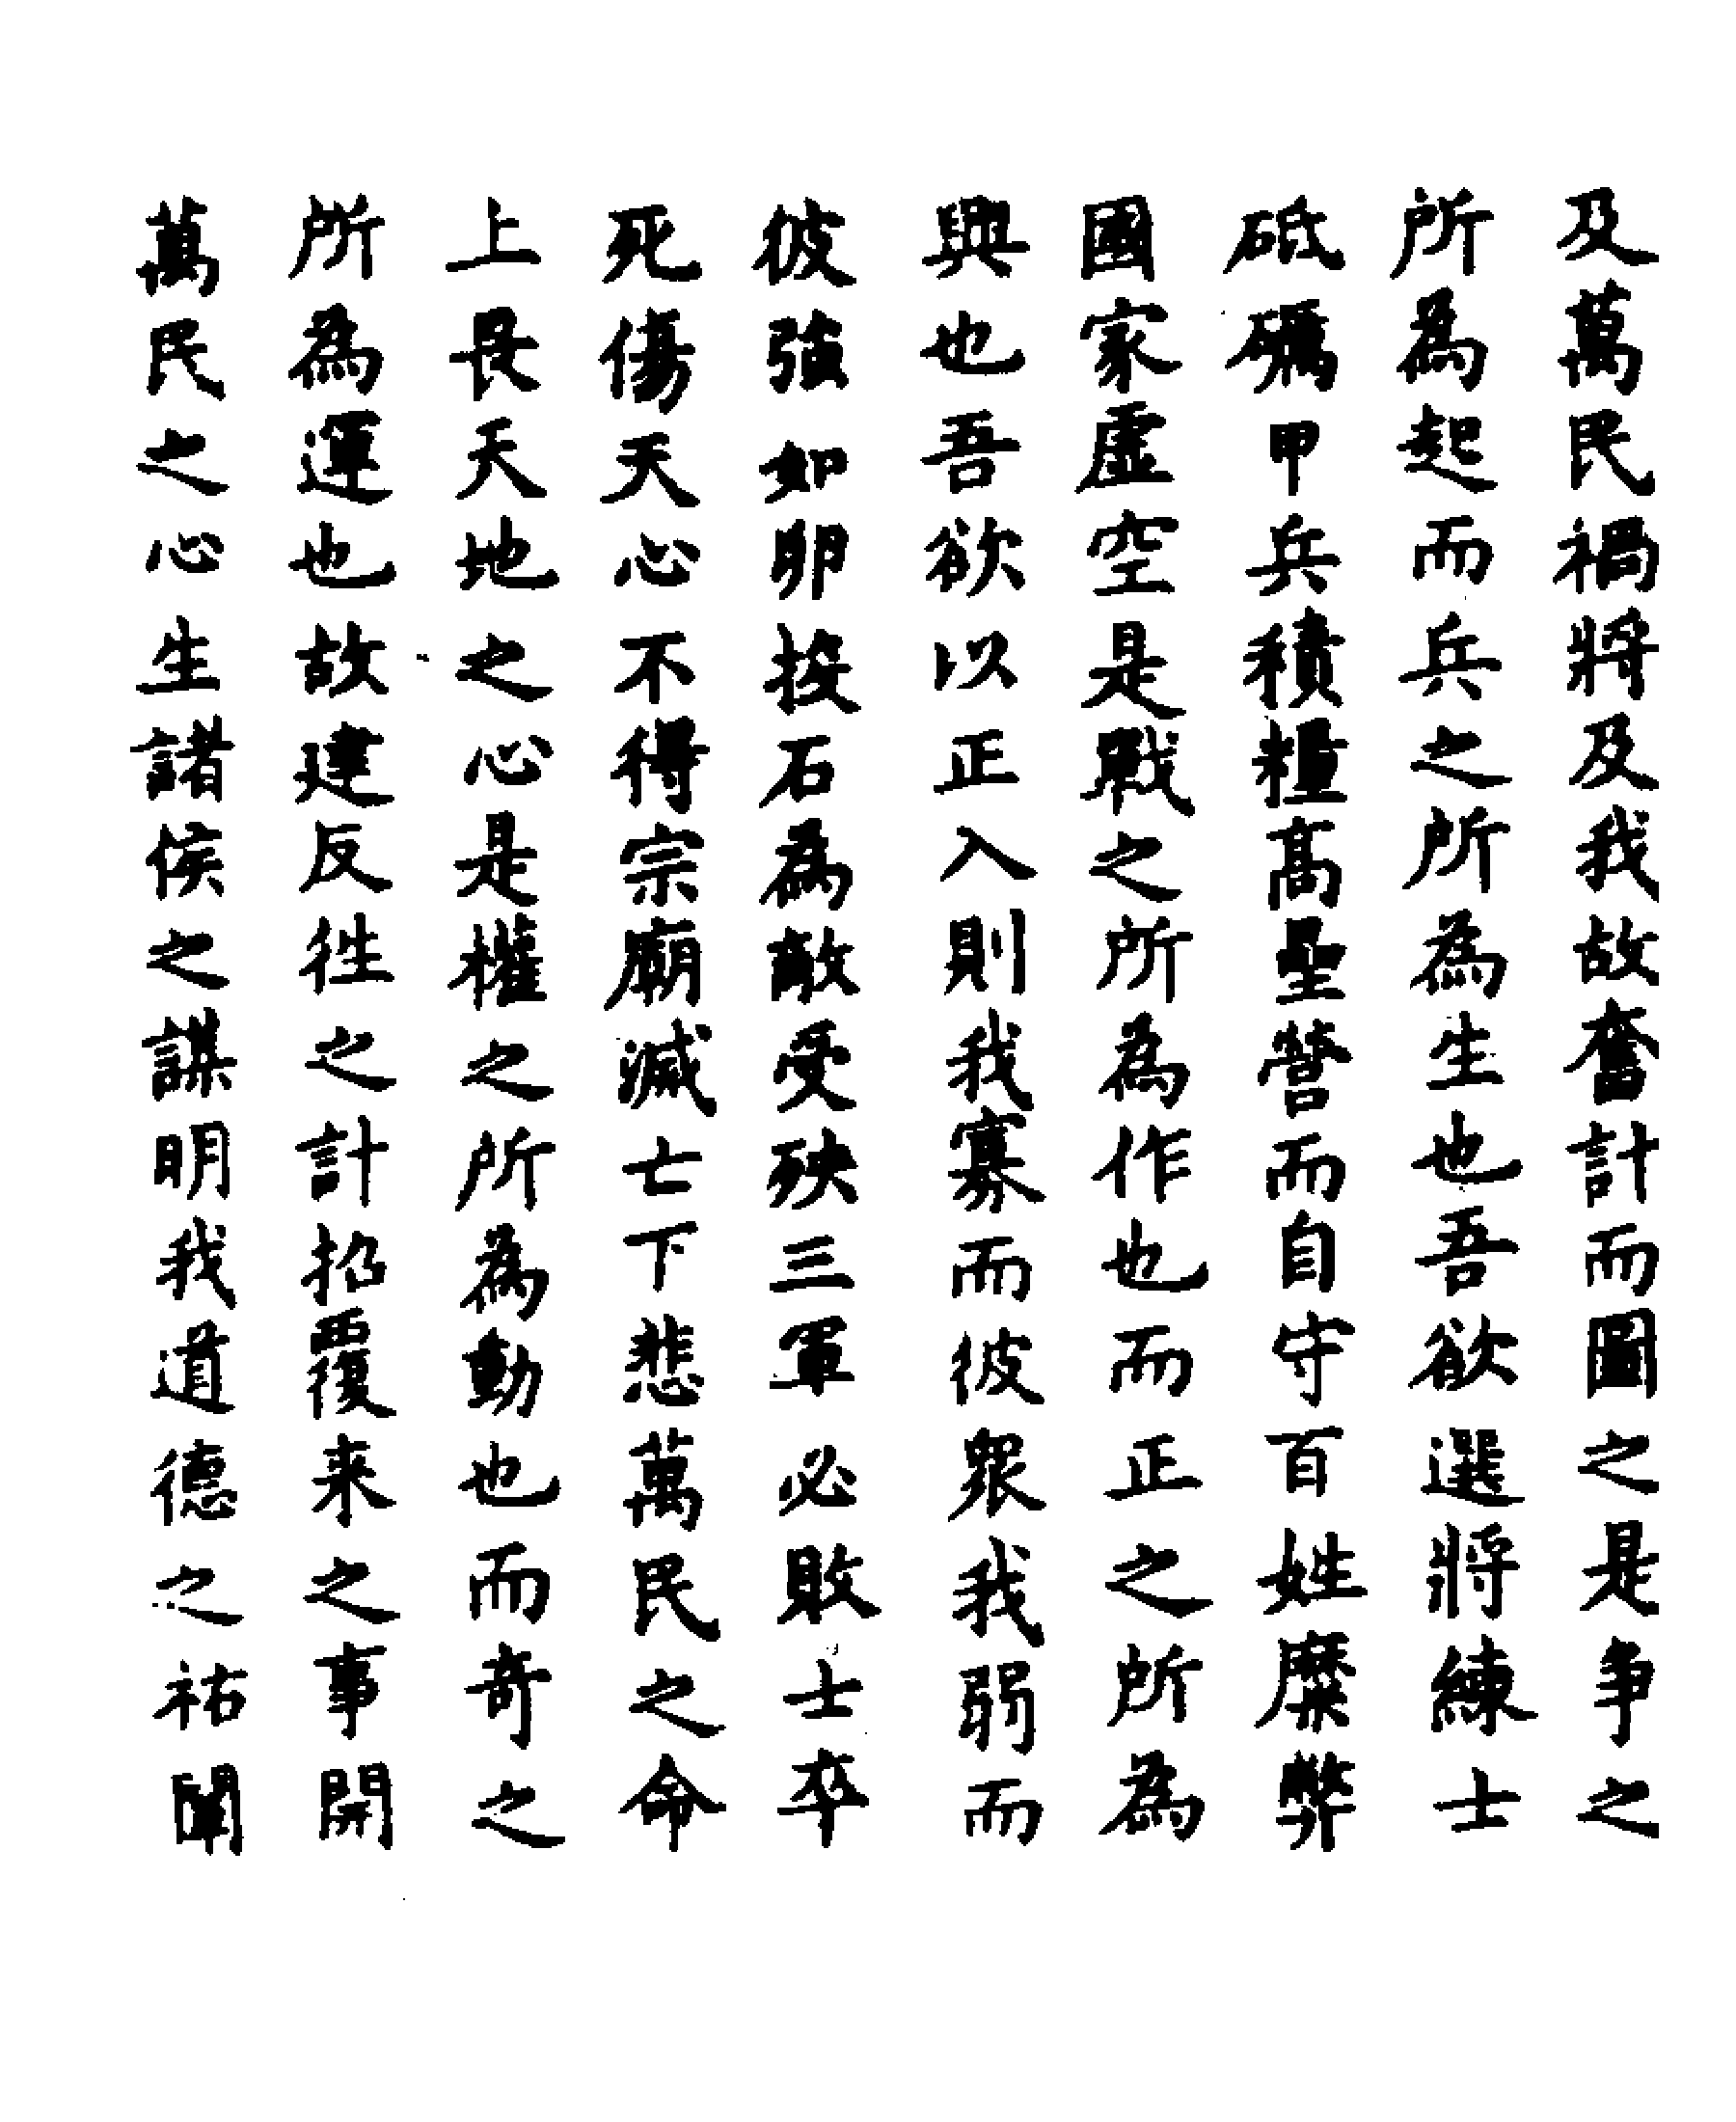 及萬民禍將及我故奮計而圖之是争之
所為起而兵之所為生也吾欲選將練士
砥礪甲兵積糧高壘營而自守百姓糜弊
國家虛空是戰之所為作也而正之所為
興也吾欲以正入則我寡而彼眾我弱而
彼強如卵投石為敵受殃三軍必敗士卒
死傷天心不得宗廟滅亡下悲萬民之命
上畏天地之心是權之所為動也而奇之
所為運也故建反往之計招覆来之事開
萬民之心生諸侯之謀明我道德之祐闡